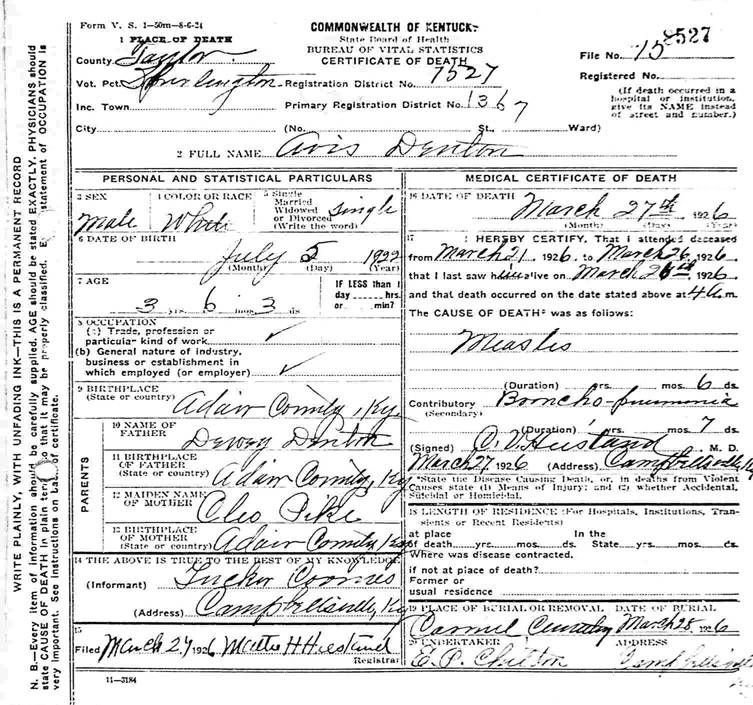 Form V. S. 1—50m—8-6-24
COMMONWEALTH OF KENTUCKY
State Board of Health
BUREAU OF VITAL STATISTICS
CERTIFICATE OF DEATH
File No. 15 8527
Registered No.
(If death occurred in a hospital or institution, give its NAME instead of street and number.)
1 PLACE OF DEATH
County Taylor
Vot. Pct. Registration District No. 7527
Inc. Town Primary Registration District No. 1367
City (No. St., Ward)
2 FULL NAME Avis Denton
PERSONAL AND STATISTICAL PARTICULARS
3 SEX Male
4 COLOR OR RACE White
5 Single Married Widowed or Divorced (Write the word) Single
6 DATE OF BIRTH July 5 1922
(Month) (Day) (Year)
7 AGE 3 yrs. 6 mos. 3 ds
IF LESS than 1 day hrs. or min?
8 OCCUPATION
(a) Trade, profession or particular kind of work ✓
(b) General nature of industry, business or establishment in which employed (or employer) ✓
9 BIRTHPLACE (State or country) Adair County, Ky.
PARENTS
10 NAME OF FATHER Dewey Denton
11 BIRTHPLACE OF FATHER (State or country) Adair County, Ky
12 MAIDEN NAME OF MOTHER Cleo Pike
13 BIRTHPLACE OF MOTHER (State or country) Adair County, Ky
14 THE ABOVE IS TRUE TO THE BEST OF MY KNOWLEDGE
(Informant) Tucker Coomes
(Address) Campbellsville, Ky
15
Filed March 27 1926 Mattie H Hiestand
Registrar
11—3184
MEDICAL CERTIFICATE OF DEATH
16 DATE OF DEATH March 27th 1926
(Month) (Day) (Year)
17 I HEREBY CERTIFY, That I attended deceased
from March 21, 1926, to March 26, 1926
that I last saw him alive on March 26th 1926
and that death occurred on the date stated above at 4 a.m.
The CAUSE OF DEATH* was as follows:
Measles
(Duration) yrs. mos. 6 ds
Contributory (Secondary) Broncho-pneumonia
(Duration) yrs. mos. 7 ds.
(Signed) O. V. Hiestand M. D.
March 27, 1926 (Address) Campbellsville, Ky
*State the Disease Causing Death, or, in deaths from Violent Causes state (1) Means of Injury; and (2) whether Accidental, Suicidal or Homicidal.
LENGTH OF RESIDENCE (For Hospitals, Institutions, Transients or Recent Residents)
at place of death yrs. mos. ds In the State yrs. mos. ds
Where was disease contracted,
if not at place of death?
Former or usual residence
19 PLACE OF BURIAL OR REMOVAL DATE OF BURIAL
Carmel Cemetery March 28, 1926
20 UNDERTAKER ADDRESS
E. P. Chelton Campbellsville
WRITE PLAINLY, WITH UNFADING INK—THIS IS A PERMANENT RECORD
N. B.—Every item of information should be carefully supplied. AGE should be stated EXACTLY. PHYSICIANS should
state CAUSE OF DEATH in plain so that it may be properly classified. statement of OCCUPATION is
very important. See instructions on of certificate.